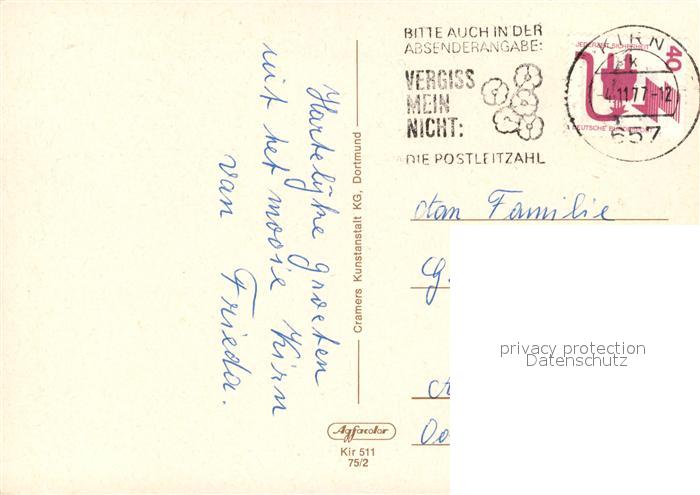 BITTE AUCH IN DER
ABSENDERANGABE:
VERGISS
MEIN
NICHT:
DIE POSTLEITZAHL
KIRN
-4.11.77-12
657
JEDERZEIT SICHERHEIT
40
DEUTSCHE BUNDESPOST
Hartelijke groeten
uit het mooie Kirn
van Frieda.
Cramers Kunstanstalt KG, Dortmund
Familie
G.
privacy protection
Datenschutz
Agfacolor
Kir 511
75/2